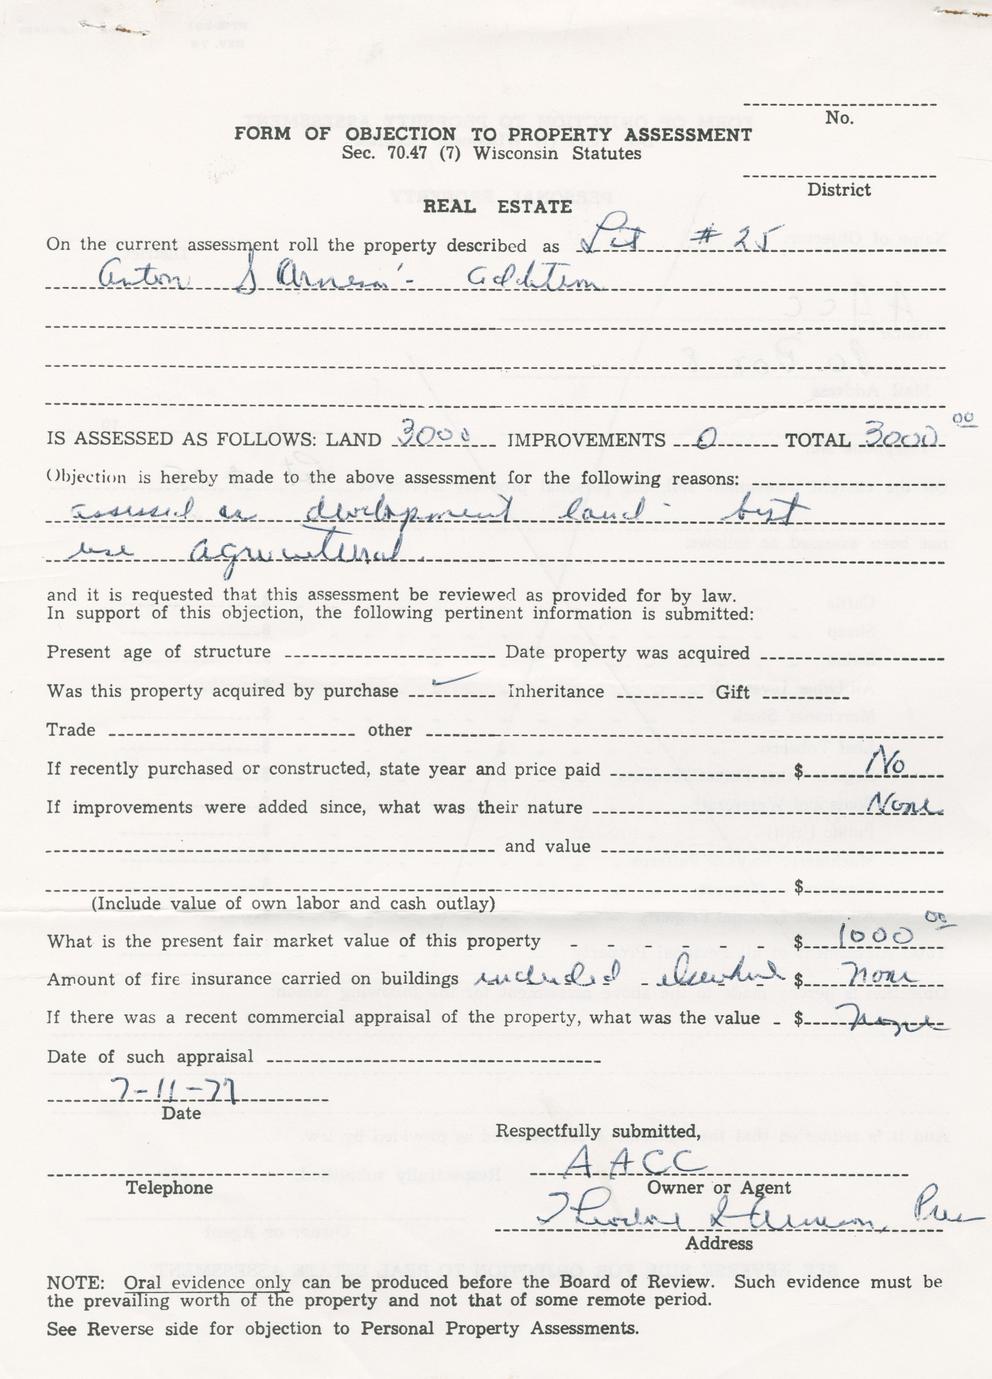 No.
FORM OF OBJECTION TO PROPERTY ASSESSMENT
Sec. 70.47 (7) Wisconsin Statutes
District
REAL ESTATE
On the current assessment roll the property described as Lot # 25
Anton S Arneson's addition
IS ASSESSED AS FOLLOWS: LAND 3000 IMPROVEMENTS 0 TOTAL 3000 00
Objection is hereby made to the above assessment for the following reasons:
assessed as development land - best
use agricultural.
and it is requested that this assessment be reviewed as provided for by law.
In support of this objection, the following pertinent information is submitted:
Present age of structure Date property was acquired
Was this property acquired by purchase ✓ Inheritance Gift
Trade other
If recently purchased or constructed, state year and price paid $ No
If improvements were added since, what was their nature None
and value
$
(Include value of own labor and cash outlay)
What is the present fair market value of this property - - - - - - $ 1000 00
Amount of fire insurance carried on buildings included elsewhere $ none
If there was a recent commercial appraisal of the property, what was the value - $ none
Date of such appraisal
7-11-77
Date
Respectfully submitted,
AACC
Telephone Owner or Agent
Theodore S Arneson, Pres
Address
NOTE: Oral evidence only can be produced before the Board of Review. Such evidence must be
the prevailing worth of the property and not that of some remote period.
See Reverse side for objection to Personal Property Assessments.